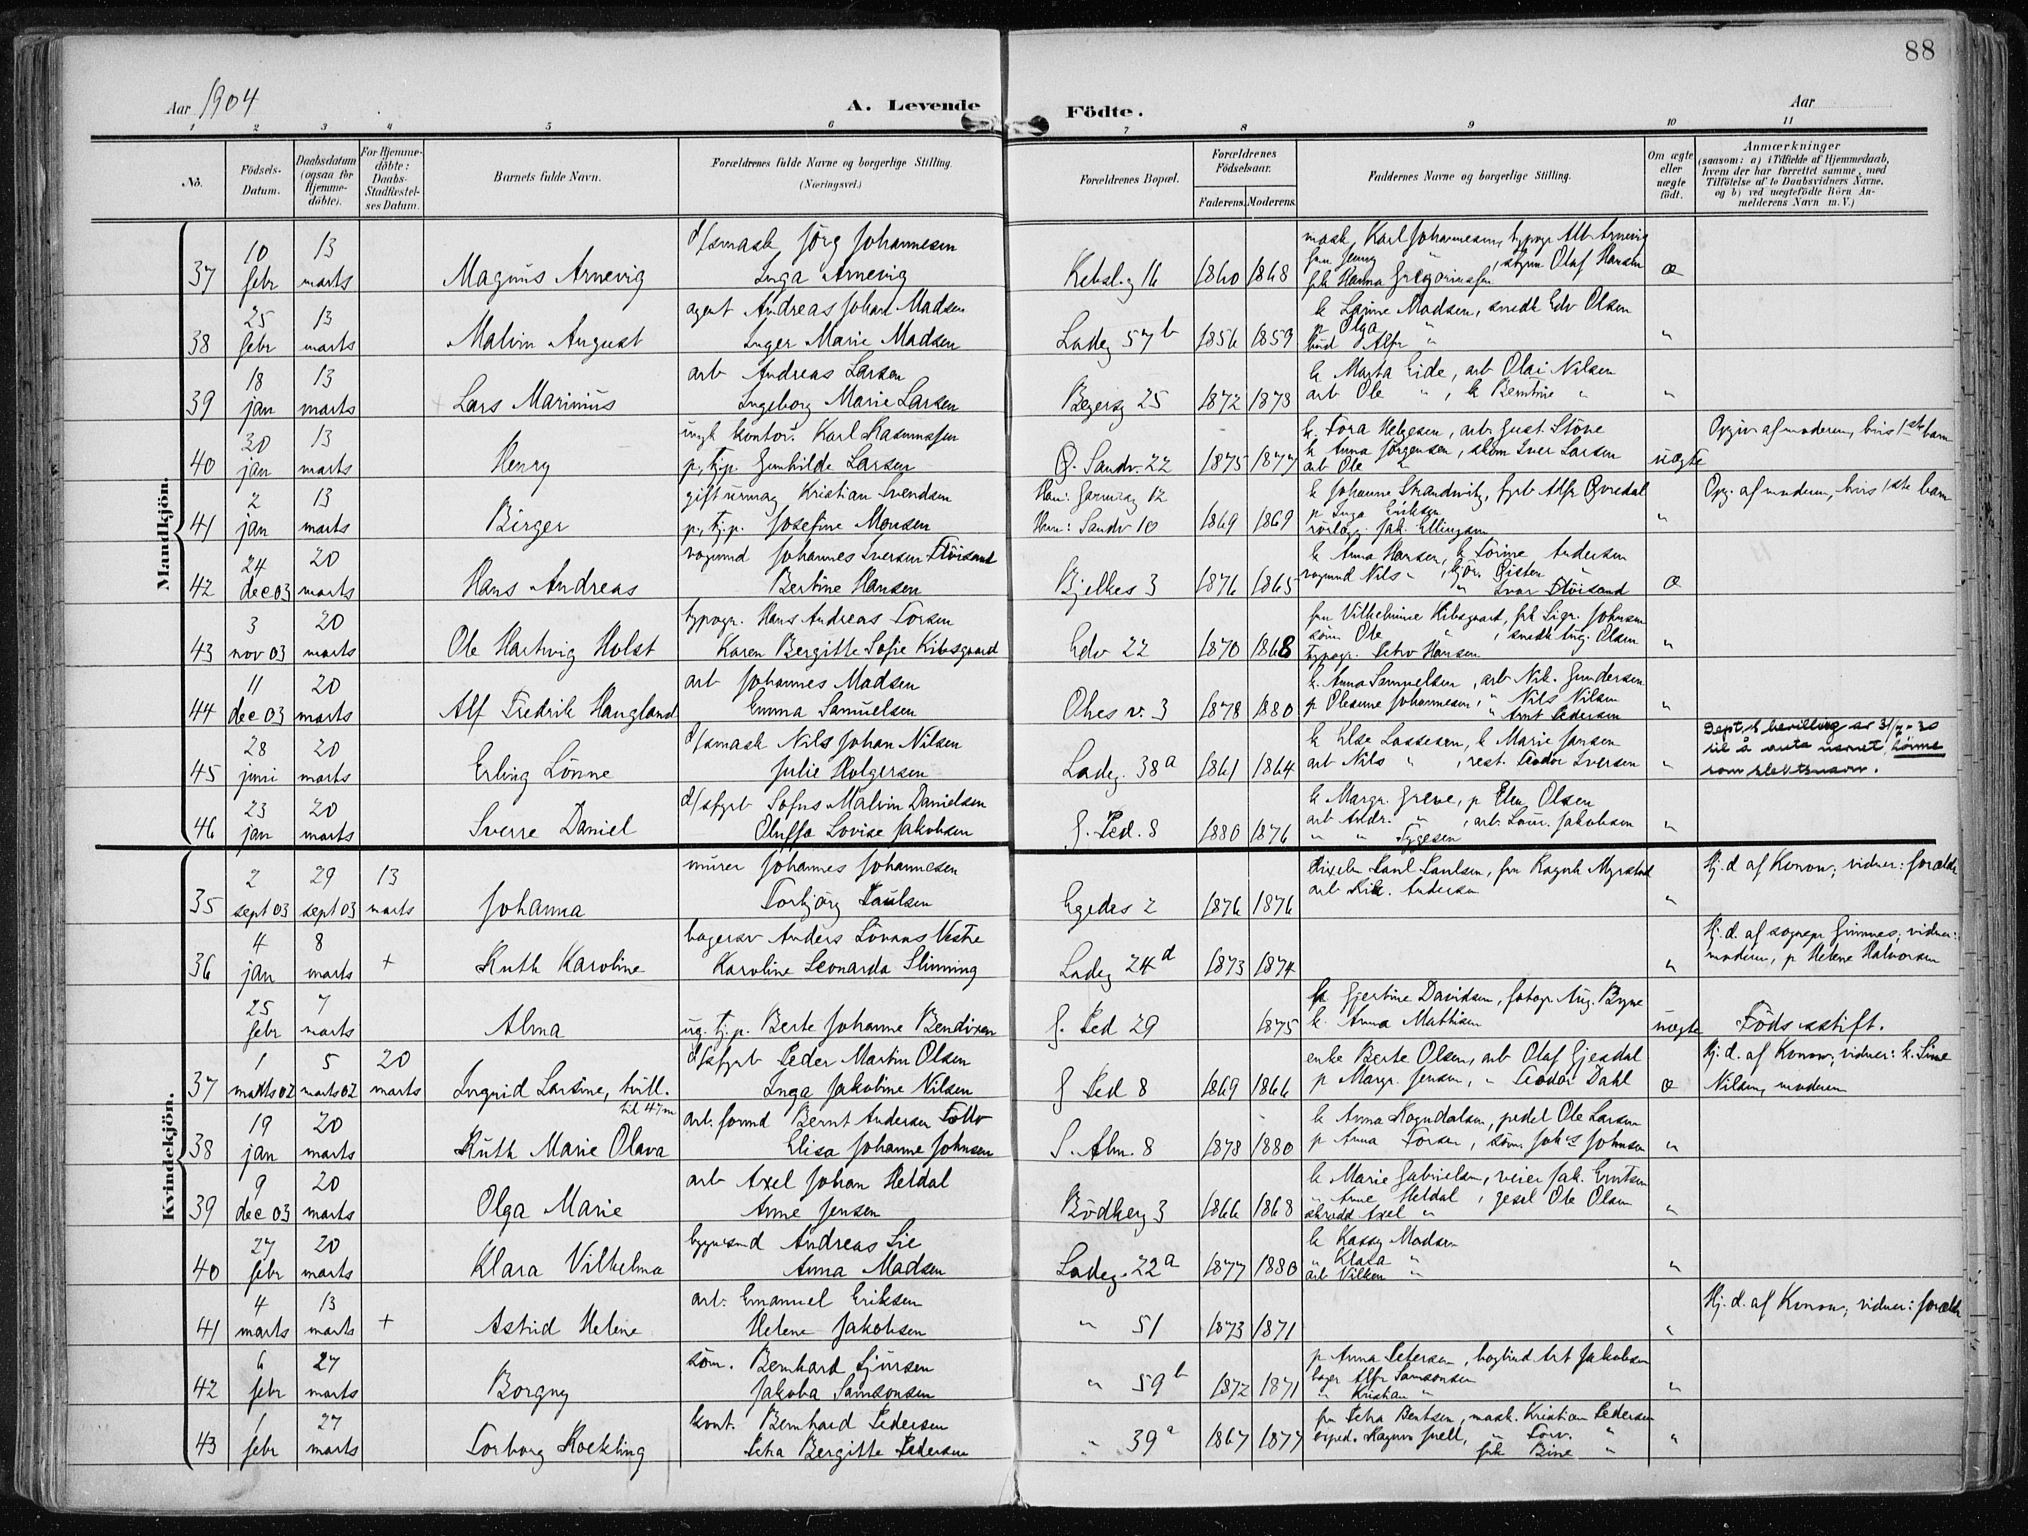 88
Aar 1904
A. Levende Födte.
Aar
1 2 3 4 5 6 7 8 9 10 11
No.
Födsels-Datum.
Daabsdatum (ogsaa for Hjemme-döbte).
For Hjemme-döbte: Daabs-Stadfæstel-ses Datum.
Barnets fulde Navn.
Forældrenes fulde Navne og borgerlige Stilling. (Næringsvei.)
Forældrenes Bopæl.
Forældrenes Födselsaar.
Faderens. Moderens.
Faddernes Navne og borgerlige Stilling.
Om ægte eller uægte födt.
Anmærkninger (saasom: a) i Tilfælde af Hjemmedaab, hvem der har forrettet samme, med Tilföielse af to Daabsvidners Navne, og b) ved uægtefödte Börn An-melderens Navn m. V.)
Mandkjön.
37 10 febr 13 marts Magnus Arnevig
Jörg Johannesen
Inga Arnevig
16 1860 1868
mask. Karl Johannesen, typogr Alb Arnevig
fru Jenny " , Olaf Hansen
frk Hanna æ
38 25 febr 13 marts Malvin August
agent Andreas Johan Madsen
Inger Marie Madsen
Ladeg 57 b 1856 1859
k Larine Madsen, smedk Edv Olsen
p Olga "
bud Alfr " "
39 18 jan 13 marts Lars Marinius
arb Andreas Larsen
Ingeborg Marie Larsen
25 1872 1873
k Marta Eide, arb Olai Nilsen
arb Ole " , k Berntine " "
40 30 jan 13 marts Henry
ungk kontor. Karl Rasmussen
p, tj.p Gunhilde Larsen
Ø. Sandv. 22 1875 1877
k. Tora Helgesen, arb. Gust. Stöve
k Anna Jörgensen, Iver Larsen
arb Ole " uægte
Opgiv af moderen, hvis 1ste barn
41 2 jan 13 marts Birger
gift urmag Kristian Svendsen
p, tj.p. Josefine Monsen
Han: 12
Hun: Sandv 10 1869 1869
k Johanne Strandvitz, fyrb Alfr Øvredal
p Inga Eriksen
Jak. Ellingsen "
Opg. af moderen, hvis 1ste barn
42 24 dec 03 20 marts Hans Andreas
vognmd Johannes Iversen Flöisand
Bertine Hansen
Bjelkes 3 1876 1865
k Anna Hansen, k Torine Andersen
vognmd Nils " , Øisten "
" Ivar Flöisand æ
43 3 nov 03 20 marts Ole Hartvig Holst
typogr. Hans Andreas Torsen
Karen Bergitte Sofie Kibsgaard
Edv 22 1870 1868
fru Vilhelmine Kibsgaard, frk Sigr. Johnsen
söm. Ole " , smedk Aug. Olsen
typogr. Petro Hansen "
44 11 dec 03 20 marts Alf Fredrik Haugland
arb Johannes Madsen
Emma Samuelsen
Ohes v. 3 1878 1880
k. Anna Samuelsen, arb Nik. Gundersen
p Olesine Johannesen, " Nils Nilsen
" Arnt Pedersen "
45 28 juni 20 marts Erling Lönne
d/smask Nils Johan Nilsen
Julie Holgersen
Ladeg. 38a 1861 1864
k Else Lassesen, k Marie Jansen
arb Nils " , rest. Teodor Iversen "
Dept.s bevilling av 31/7-30
til å anta navnet Lönne
som slektsnavn.
46 23 jan 20 marts Sverre Daniel
d/sfyrb Sofus Malvin Danielsen
Oluffa Lovise Jakobsen
S. Ped. 8 1880 1876
k Margr. Greve, p Elen Olsen
arb Andr. " , arb. Laur. Jakobsen
" " Tygesen "
Kvindekjön.
35 2 sept 03 29 sept 03 13 marts Johanna
murer Johannes Johannesen
Torbjörg Paulsen
Egedes 2 1876 1876
Paul Paulsen, fru Ragnh Myrstad
arb Andersen "
Hj. d. af Konow; vidner: forældr
36 4 jan 8 marts + Ruth Karoline
bagersv Anders Lönaas Vestre
Karoline Leonarda Slinning
Ladeg 24 d 1873 1874 "
Hj. d. af sognepr Grimnes; vidner:
moderen, p Helene Halvorsen
25 febr 7 marts Alma
ug. tj.p. Berte Johanne Bendixen
S. Ped 29 1875
Gjertine Davidsen, fotogr Aug. Bryne
k. Anna Mathisen uægte
Föds.sstift.
37 1 marts 02 5 marts 02 20 marts Ingrid Larsine, tvill.
til 47 m
d/sfyrb Peder Martin Olsen
Inga Jakobine Nilsen
S Ped 8 1869 1866
enke Berte Olsen, arb Olaf Gjesdal
p Margr. Jensen, " Teodor Dahl æ
Hj. d. af Konow; vidner: k. Sine
Nilsen, moderen
38 19 jan 20 marts Ruth Marie Olava
arb. formd Bernt Andersen Totto
Elisa Johanne Johnsen
S. Alm. 8 1878 1880
k Anna Rogndalsen, pedel Ole Larsen
p Anna Torsen, söm. Johs Johnsen "
39 9 dec 03 20 marts Olga Marie
arb Axel Johan Heldal
Anne Jensen
Bödkerg 3 1866 1868
k Marie Gabrielsen, veier Jak. Erntsen
" Anne Heldal, gesel Ole Olsen
skrædd Axel " "
40 27 febr 20 marts Klara Vilhelma
bygnsnd Andreas Lie
Anna Madsen
Ladeg. 22a 1877 1880
k Kassy Madsen
" Klara "
arb Vilken " "
41 4 marts 13 marts + Astrid Helene
arb. Emanuel Eriksen
Helene Jakobsen
" 51 1873 1871 "
Hj. d. af Konow; vidner: forældr
42 6 febr 27 marts Borgny
söm. Bernhard Sjursen
Jakoba Samsonsen
" 59 b 1872 1871
p Anna Petersen, bogbind Art Jakobsen
bager Alfr Samsonsen
" Kristian " "
43 1 febr 27 marts Torborg Roekling
kont. Bernhard Pedersen
Petra Bergitte Pedersen
" 39 a 1867 1877
fru Petra Bentsen, mask. Kristian Pedersen
exped. Ragnv Snell, " Torv. "
frk Bine " "